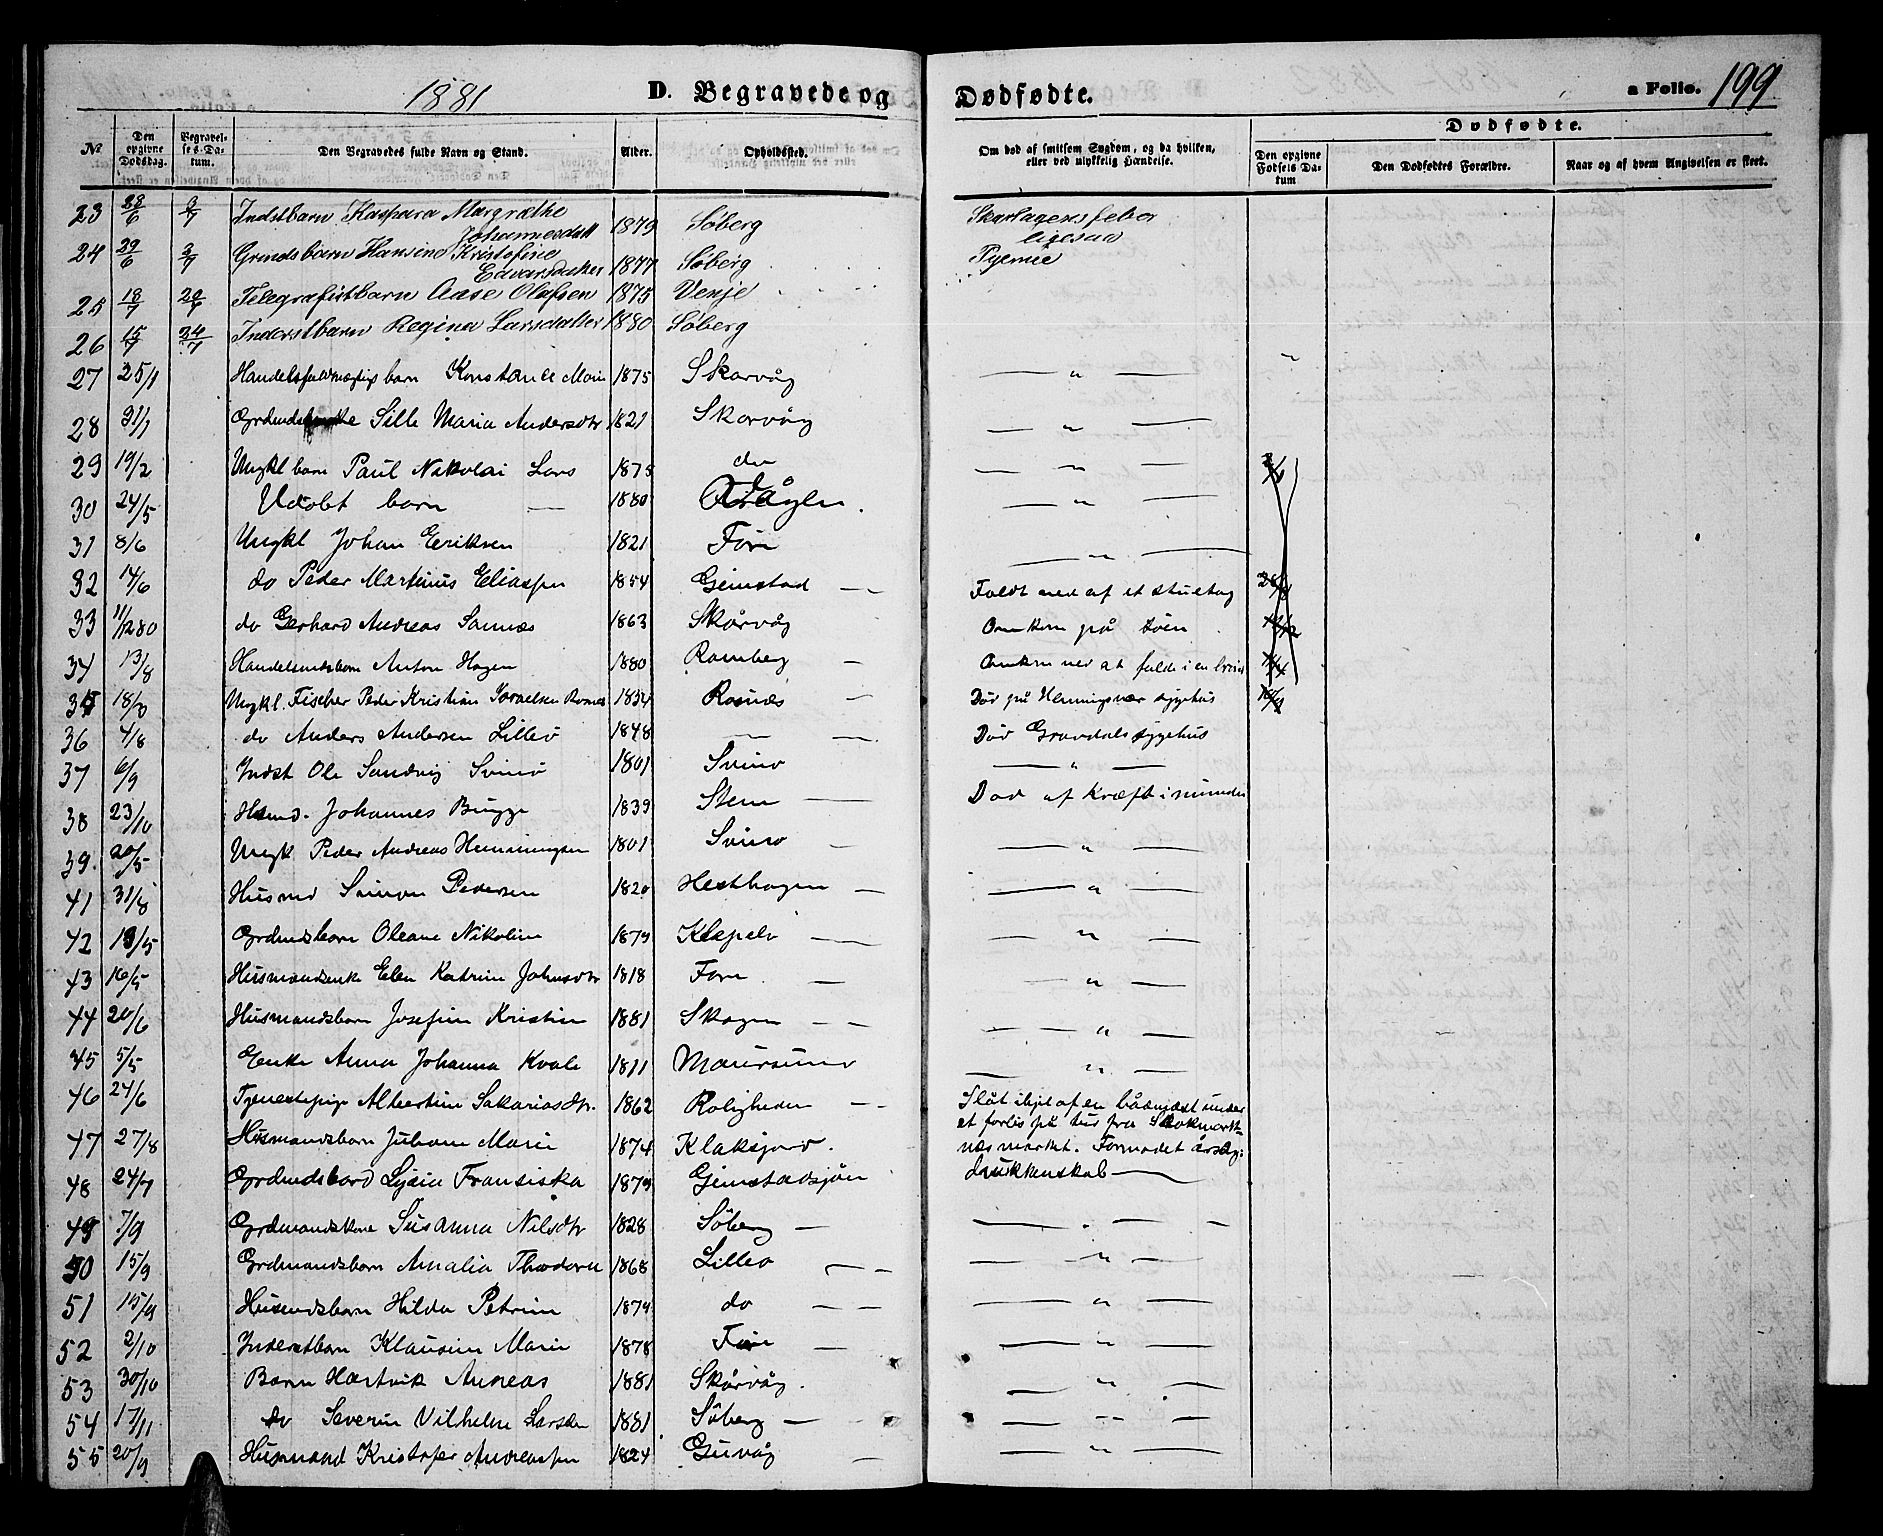 1881 D. Begravede og Dødfødte. a Folio. 199
Dødfødte.
№ Den opgivne Dødsdag. Begravelses-Datum. Den Begravedes fulde Navn og Stand. Alder. Opholdssted. Om død af smitsom Sygdom, og da hvilken, eller ved ulykkelig Hændelse. Den opgivne Fødsels Datum Den Dødfødtes Forældre. Naar og af hvem Angivelsen er skeet.
23 28/6 3/7 Indstbarn Kaspara Margrethe Johannesdatt 1879 Søberg Skarlagensfeber
ligesaa
24 29/6 3/7 Grmdsbarn Hansine Kristofine Edvarsdatter 1877 Søberg Pyemie
25 18/7 20/7 Telegrafistbarn Aase Olafsen 1875 Venje
26 15/7 24/7 Inderstbarn Regina Larsdatter 1880 Søberg "
27 25/1 Handelsfuldmægtigs barn Konstance Marie 1875 Skarvåg — " —
28 31/1 Grdmds Sille Maria Andersdtr 1821 Skarvåg — " —
29 19/2 Ungkl barn Paul Nikolai Lars 1875 do — " —
30 24/5 Udøbt barn — 1880 — " —
31 8/6 Ungkl Johan Eriksen 1821 Føre — " —
32 14/6 do Peder Martinus Eliassen 1854 Gimstad — Faldt ned af et stuetag 28/8
33 11/12 80 do Gerhard Andreas Sannæs 1863 Skårvåg Omkom på søen
34 13/8 Handelsmdsbarn Anton Hagen 1880 Ramberg — Omkom ved at falde i en brønd
35 18/3 Ungkl. Fischer Peder Kristian Kornelsen Rosnæs 1834 Rosnæs Død på Henningsvær sygehus
36 4/8 do Anders Andersen Lillev 1848 — — Død Gravdals sygehus
37 6/9 Indst Ole Sandvig Svinø 1801 Svinø — " —
38 23/10 Hsmd. Johannes Bugge 1839 Stene — Død af Kræft i munden
39. 20/5 Ungk Peder Andreas Henningsen 1801 Svinø — — " —
41 31/8 Husmd Simon Pedersen 1820 Hesthagen — — " —
42 13/5 Grdmdsbarn Oleane Nikoline 1879 Klepelv — — " —
43 16/5 Husmandsenke Elen Katrine Johnsdtr 1818 Føre — — " —
44 20/6 Husmandsbarn Josefine Kristine 1881 Skogen — — — " —
45 5/5 Enke Anna Johanna Kvale 1811 Maursund — " —
46 24/6 Tjenestepige Albertine Sakariasdtr. 1862 Roligheden — — Slåt ihjel af en bådmast under
et forlis på tur fra Stokmark-
47 27/8 Husmandsbarn Juliane Marie 1874 Klaksjord. næs market. Formodet årsag:
48 24/7 Grdmdsbard Lysia Fransiska 1879 Gimstadsjøen drukkenskab —
49 7/9 Grdmandskone Susanna Nilsdtr 1828 Søberg — — " — —
50 15/9 Grdmandsbarn Amalia Theodora 1868 Lillev — — — " — —
51 15/9 Husmdsbarn Hilda Petrine 1879 do — — — " —
52 2/10 Inderstbarn Klausine Marie 1878 Føre — — " —
53 30/10 Barn Hartvik Andreas 1881 Skårvåg. — " —
54 17/11 do Severin Vilhelm Larsen 1881 Søberg — — — " —
55 20/9 Husmand Kristofer Andreassen 1824 Guvåg — — " —